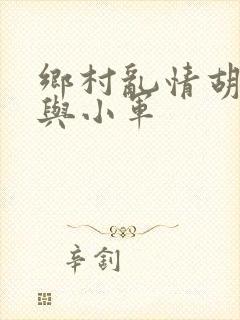 鄉村亂情胡
與小軍
辛劄